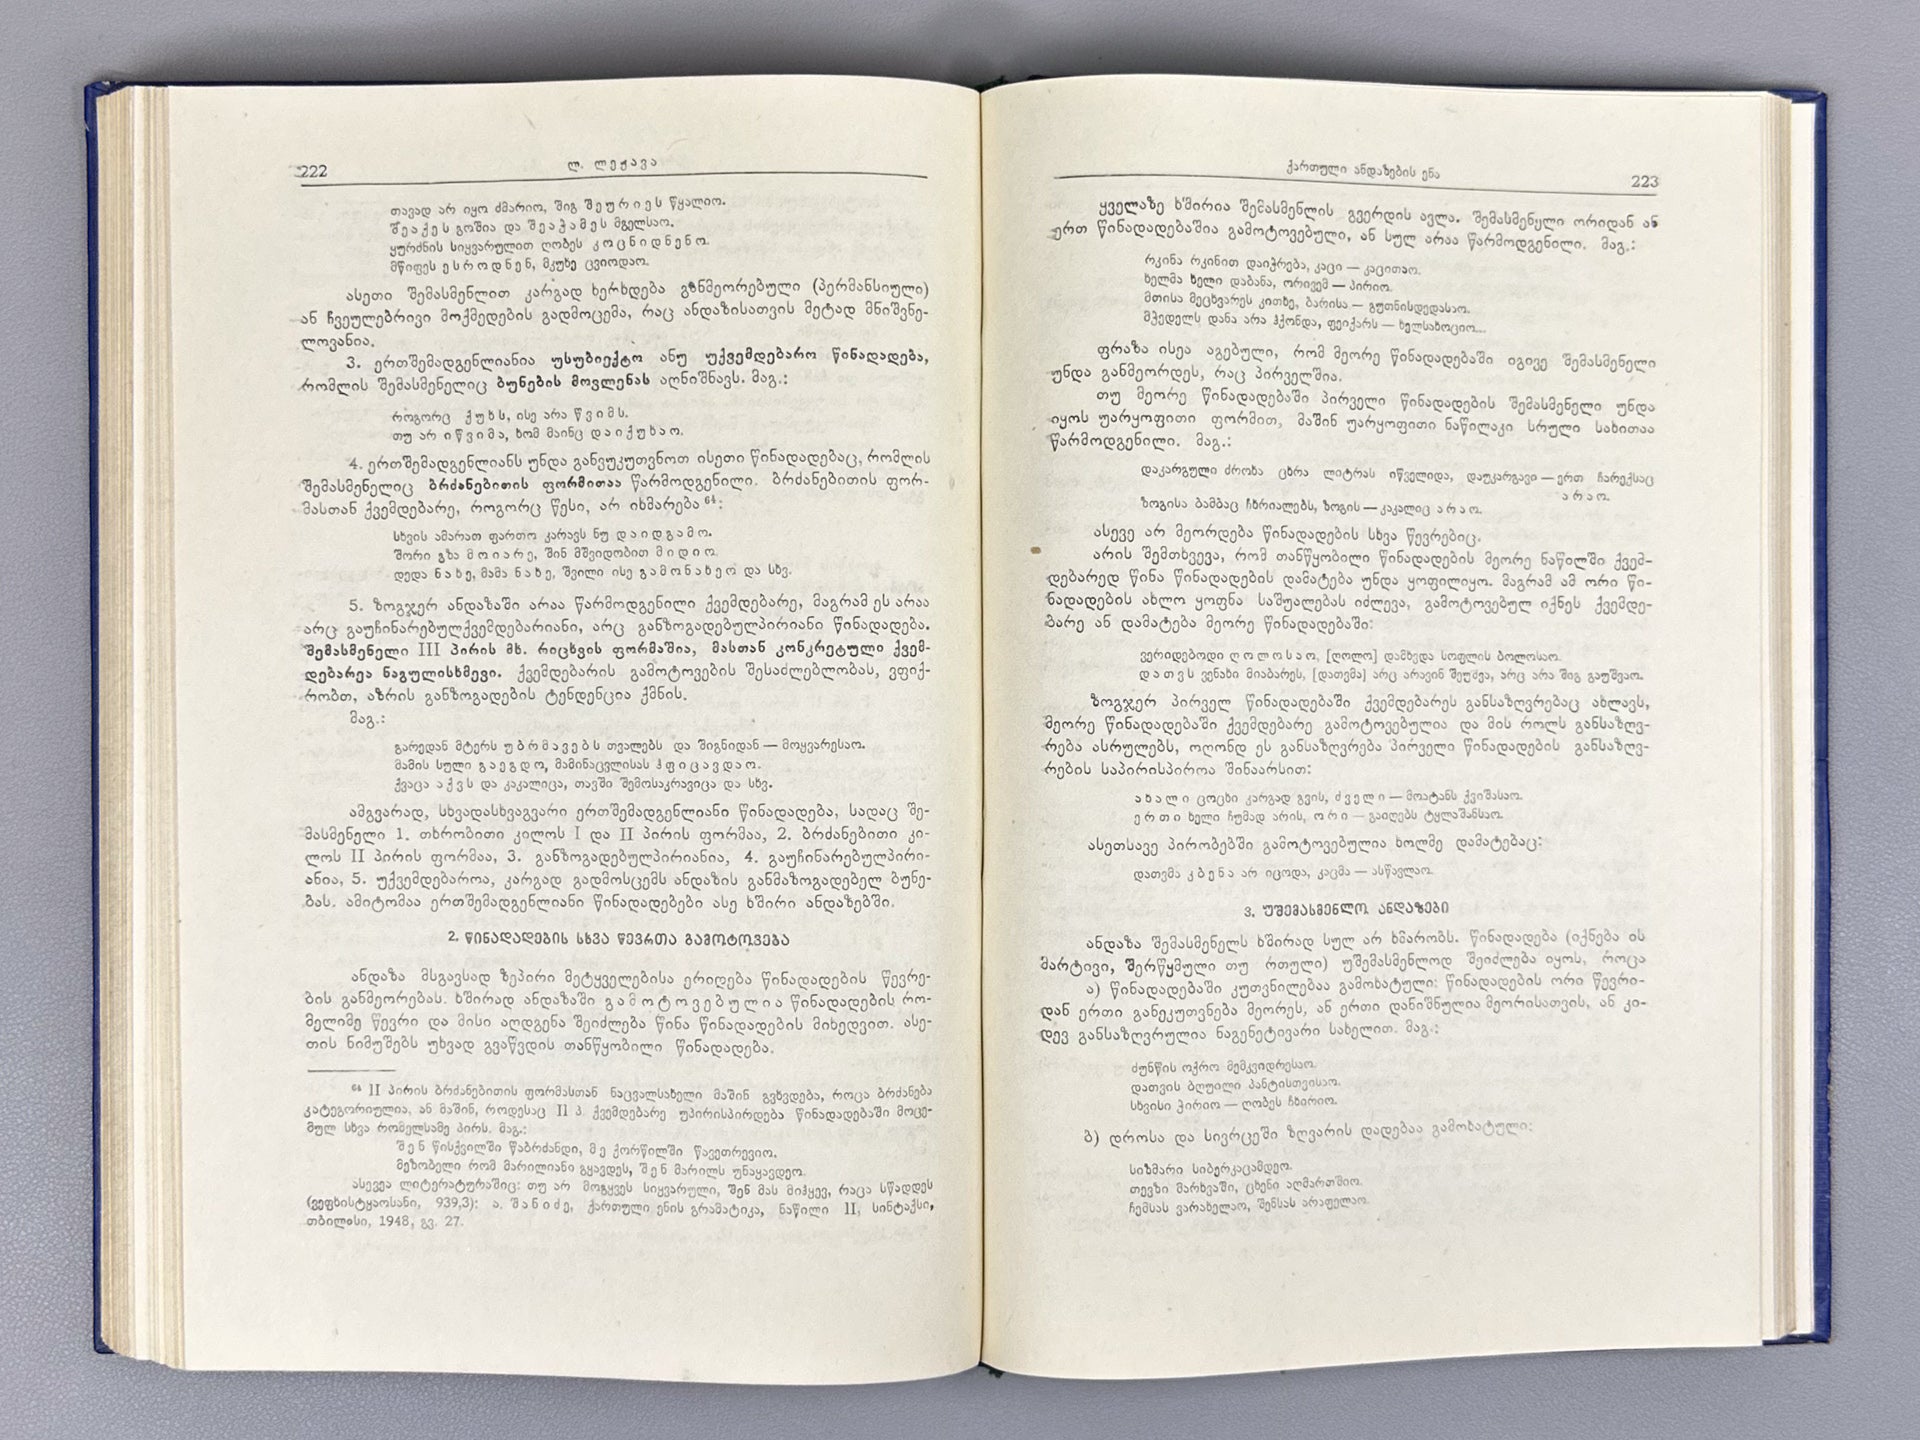 222
ლ. ლეჟავა
თავად არ იყო ძმარიო, შიგ შეურიეს წყალიო.
შეაქეს გოშია და შეაჭამეს მგელსაო.
ყურძნის სიყვარულით ღობეს კოცნიდნენო.
მწიფეს ესროდნენ, მკუხე ცვიოდაო.
ასეთი შემასმენლით კარგად ხერხდება განმეორებული (პერმანსიული)
ან ჩვეულებრივი მოქმედების გადმოცემა, რაც ანდაზისათვის მეტად მნიშვნე-
ლოვანია.
3. ერთშემადგენლიანია უსუბიექტო ანუ უქვემდებარო წინადადება,
რომლის შემასმენელიც ბუნების მოვლენას აღნიშნავს. მაგ.:
როგორც ქუხს, ისე არა წვიმს.
თუ არ იწვიმა, ხომ მაინც დაიქუხაო.
4. ერთშემადგენლიანს უნდა განვუკუთვნოთ ისეთი წინადადებაც, რომლის
შემასმენელიც ბრძანებითის ფორმითაა წარმოდგენილი. ბრძანებითის ფორ-
მასთან ქვემდებარე, როგორც წესი, არ იხმარება 64:
სხვის ამარათ ფართო კარავს ნუ დაიდგამო.
შორი გზა მოიარე, შინ მშვიდობით მიდიო.
დედა ნახე, მამა ნახე, შვილი ისე გამონახეო და სხვ.
5. ზოგჯერ ანდაზაში არაა წარმოდგენილი ქვემდებარე, მაგრამ ეს არაა
არც გაუჩინარებულქვემდებარიანი, არც განზოგადებულპირიანი წინადადება.
შემასმენელი III პირის მხ. რიცხვის ფორმაშია, მასთან კონკრეტული ქვემ-
დებარეა ნაგულისხმევი. ქვემდებარის გამოტოვების შესაძლებლობას, ვფიქ-
რობთ, აზრის განზოგადების ტენდენცია ქმნის.
მაგ.:
გარედან მტერს უბრმავებს თვალებს და შიგნიდან — მოყვარესაო.
მამის სული გაეგდო, მამინაცვლისას ჰფიცავდაო.
ქვაცა აქვს და კაკალიცა, თავში შემოსაკრავიცა და სხვ.
ამგვარად, სხვადასხვაგვარი ერთშემადგენლიანი წინადადება, სადაც შე-
მასმენელი 1. თხრობითი კილოს I და II პირის ფორმაა, 2. ბრძანებითი კი-
ლოს II პირის ფორმაა, 3. განზოგადებულპირიანია, 4. გაუჩინარებულპირი-
ანია, 5. უქვემდებაროა, კარგად გადმოსცემს ანდაზის განმაზოგადებელ ბუნე-
ბას. ამიტომაა ერთშემადგენლიანი წინადადებები ასე ხშირი ანდაზებში.
2. წინადადების სხვა წევრთა გამოტოვება
ანდაზა მსგავსად ზეპირი მეტყველებისა ერიდება წინადადების წევრე-
ბის განმეორებას. ხშირად ანდაზაში გამოტოვებულია წინადადების რო-
მელიმე წევრი და მისი აღდგენა შეიძლება წინა წინადადების მიხედვით. ასე-
თის ნიმუშებს უხვად გვაწვდის თანწყობილი წინადადება.
64 II პირის ბრძანებითის ფორმასთან ნაცვალსახელი მაშინ გვხვდება, როცა ბრძანება
კატეგორიულია, ან მაშინ, როდესაც II პ. ქვემდებარე უპირისპირდება წინადადებაში მოცე-
მულ სხვა რომელსამე პირს. მაგ.:
შენ წისქვილში წაბრძანდი, მე ქორწილში წავეთრევიო.
მეზობელი რომ მარილიანი გყავდეს, შენ მარილს უნაყავდეო.
ასევეა ლიტერატურაშიც: თუ არ მოგყვეს სიყვარული, შენ მას მიჰყევ, რაცა სწადდეს
(ვეფხისტყაოსანი, 939,3): ა. შანიძე, ქართული ენის გრამატიკა, ნაწილი II, სინტაქსი,
თბილისი, 1948, გვ. 27.
ქართული ანდაზების ენა
223
ყველაზე ხშირია შემასმენლის გვერდის ავლა. შემასმენელი ორიდან ან
ერთ წინადადებაშია გამოტოვებული, ან სულ არაა წარმოდგენილი. მაგ.:
რკინა რკინით დაიჭრება, კაცი — კაცითაო.
ხელმა ხელი დაბანა, ორივემ — პირიო.
მთისა მეცხვარეს კითხე, ბარისა — გუთნისდედასაო.
მჭედელს დანა არა ჰქონდა, ფეიქარს — ხელსახოციო...
ფრაზა ისეა აგებული, რომ მეორე წინადადებაში იგივე შემასმენელი
უნდა განმეორდეს, რაც პირველშია.
თუ მეორე წინადადებაში პირველი წინადადების შემასმენელი უნდა
იყოს უარყოფითი ფორმით, მაშინ უარყოფითი ნაწილაკი სრული სახითაა
წარმოდგენილი. მაგ.:
დაკარგული ძროხა ცხრა ლიტრას იწველიდა, დაუკარგავი — ერთ ჩარექსაც
არაო.
ზოგისა ბამბაც ჩხრიალებს, ზოგის — კაკალიც არაო.
ასევე არ მეორდება წინადადების სხვა წევრებიც.
არის შემთხვევა, რომ თანწყობილი წინადადების მეორე ნაწილში ქვემ-
დებარედ წინა წინადადების დამატება უნდა ყოფილიყო. მაგრამ ამ ორი წი-
ნადადების ახლო ყოფნა საშუალებას იძლევა, გამოტოვებულ იქნეს ქვემდე-
ბარე ან დამატება მეორე წინადადებაში:
ვერიდებოდი ღოლოსაო, [ღოლო] დამხვდა სოფლის ბოლოსაო.
დათვს ვენახი მიაბარეს, [დათვმა] არც არავინ შეუშვა, არც არა შიგ გაუშვაო.
ზოგჯერ პირველ წინადადებაში ქვემდებარეს განსაზღვრებაც ახლავს,
მეორე წინადადებაში ქვემდებარე გამოტოვებულია და მის როლს განსაზღვ-
რება ასრულებს, ოღონდ ეს განსაზღვრება პირველი წინადადების განსაზღვ-
რების საპირისპიროა შინაარსით:
ახალი ცოცხი კარგად გვის, ძველი — მოატანს ქვიშასაო.
ერთი ხელი ჩუმად არის, ორი — გაიღებს ტყლაშანსაო.
ასეთსავე პირობებში გამოტოვებულია ხოლმე დამატებაც:
დათვმა კბენა არ იცოდა, კაცმა — ასწავლაო.
3. უშემასმენლო ანდაზები
ანდაზა შემასმენელს ხშირად სულ არ ხმარობს. წინადადება (იქნება ის
მარტივი, შერწყმული თუ რთული) უშემასმენლოდ შეიძლება იყოს, როცა
ა) წინადადებაში კუთვნილებაა გამოხატული: წინადადების ორი წევრი-
დან ერთი განეკუთვნება მეორეს, ან ერთი დანიშნულია მეორისათვის, ან კი-
დევ განსაზღვრულია ნაგენეტივარი სახელით. მაგ.:
ძუნწის ოქრო მემკვიდრესაო.
დათვის ბღუილი პანტისთვისაო.
სხვისი ჭირიო — ღობეს ჩხირიო.
ბ) დროსა და სივრცეში ზღვარის დადებაა გამოხატული:
სიზმარი სიბერკაცამდეო.
თევზი მარხვაში, ცხენი აღმართშიო.
ჩემსას ვარახელაო, შენსას არაფელაო.